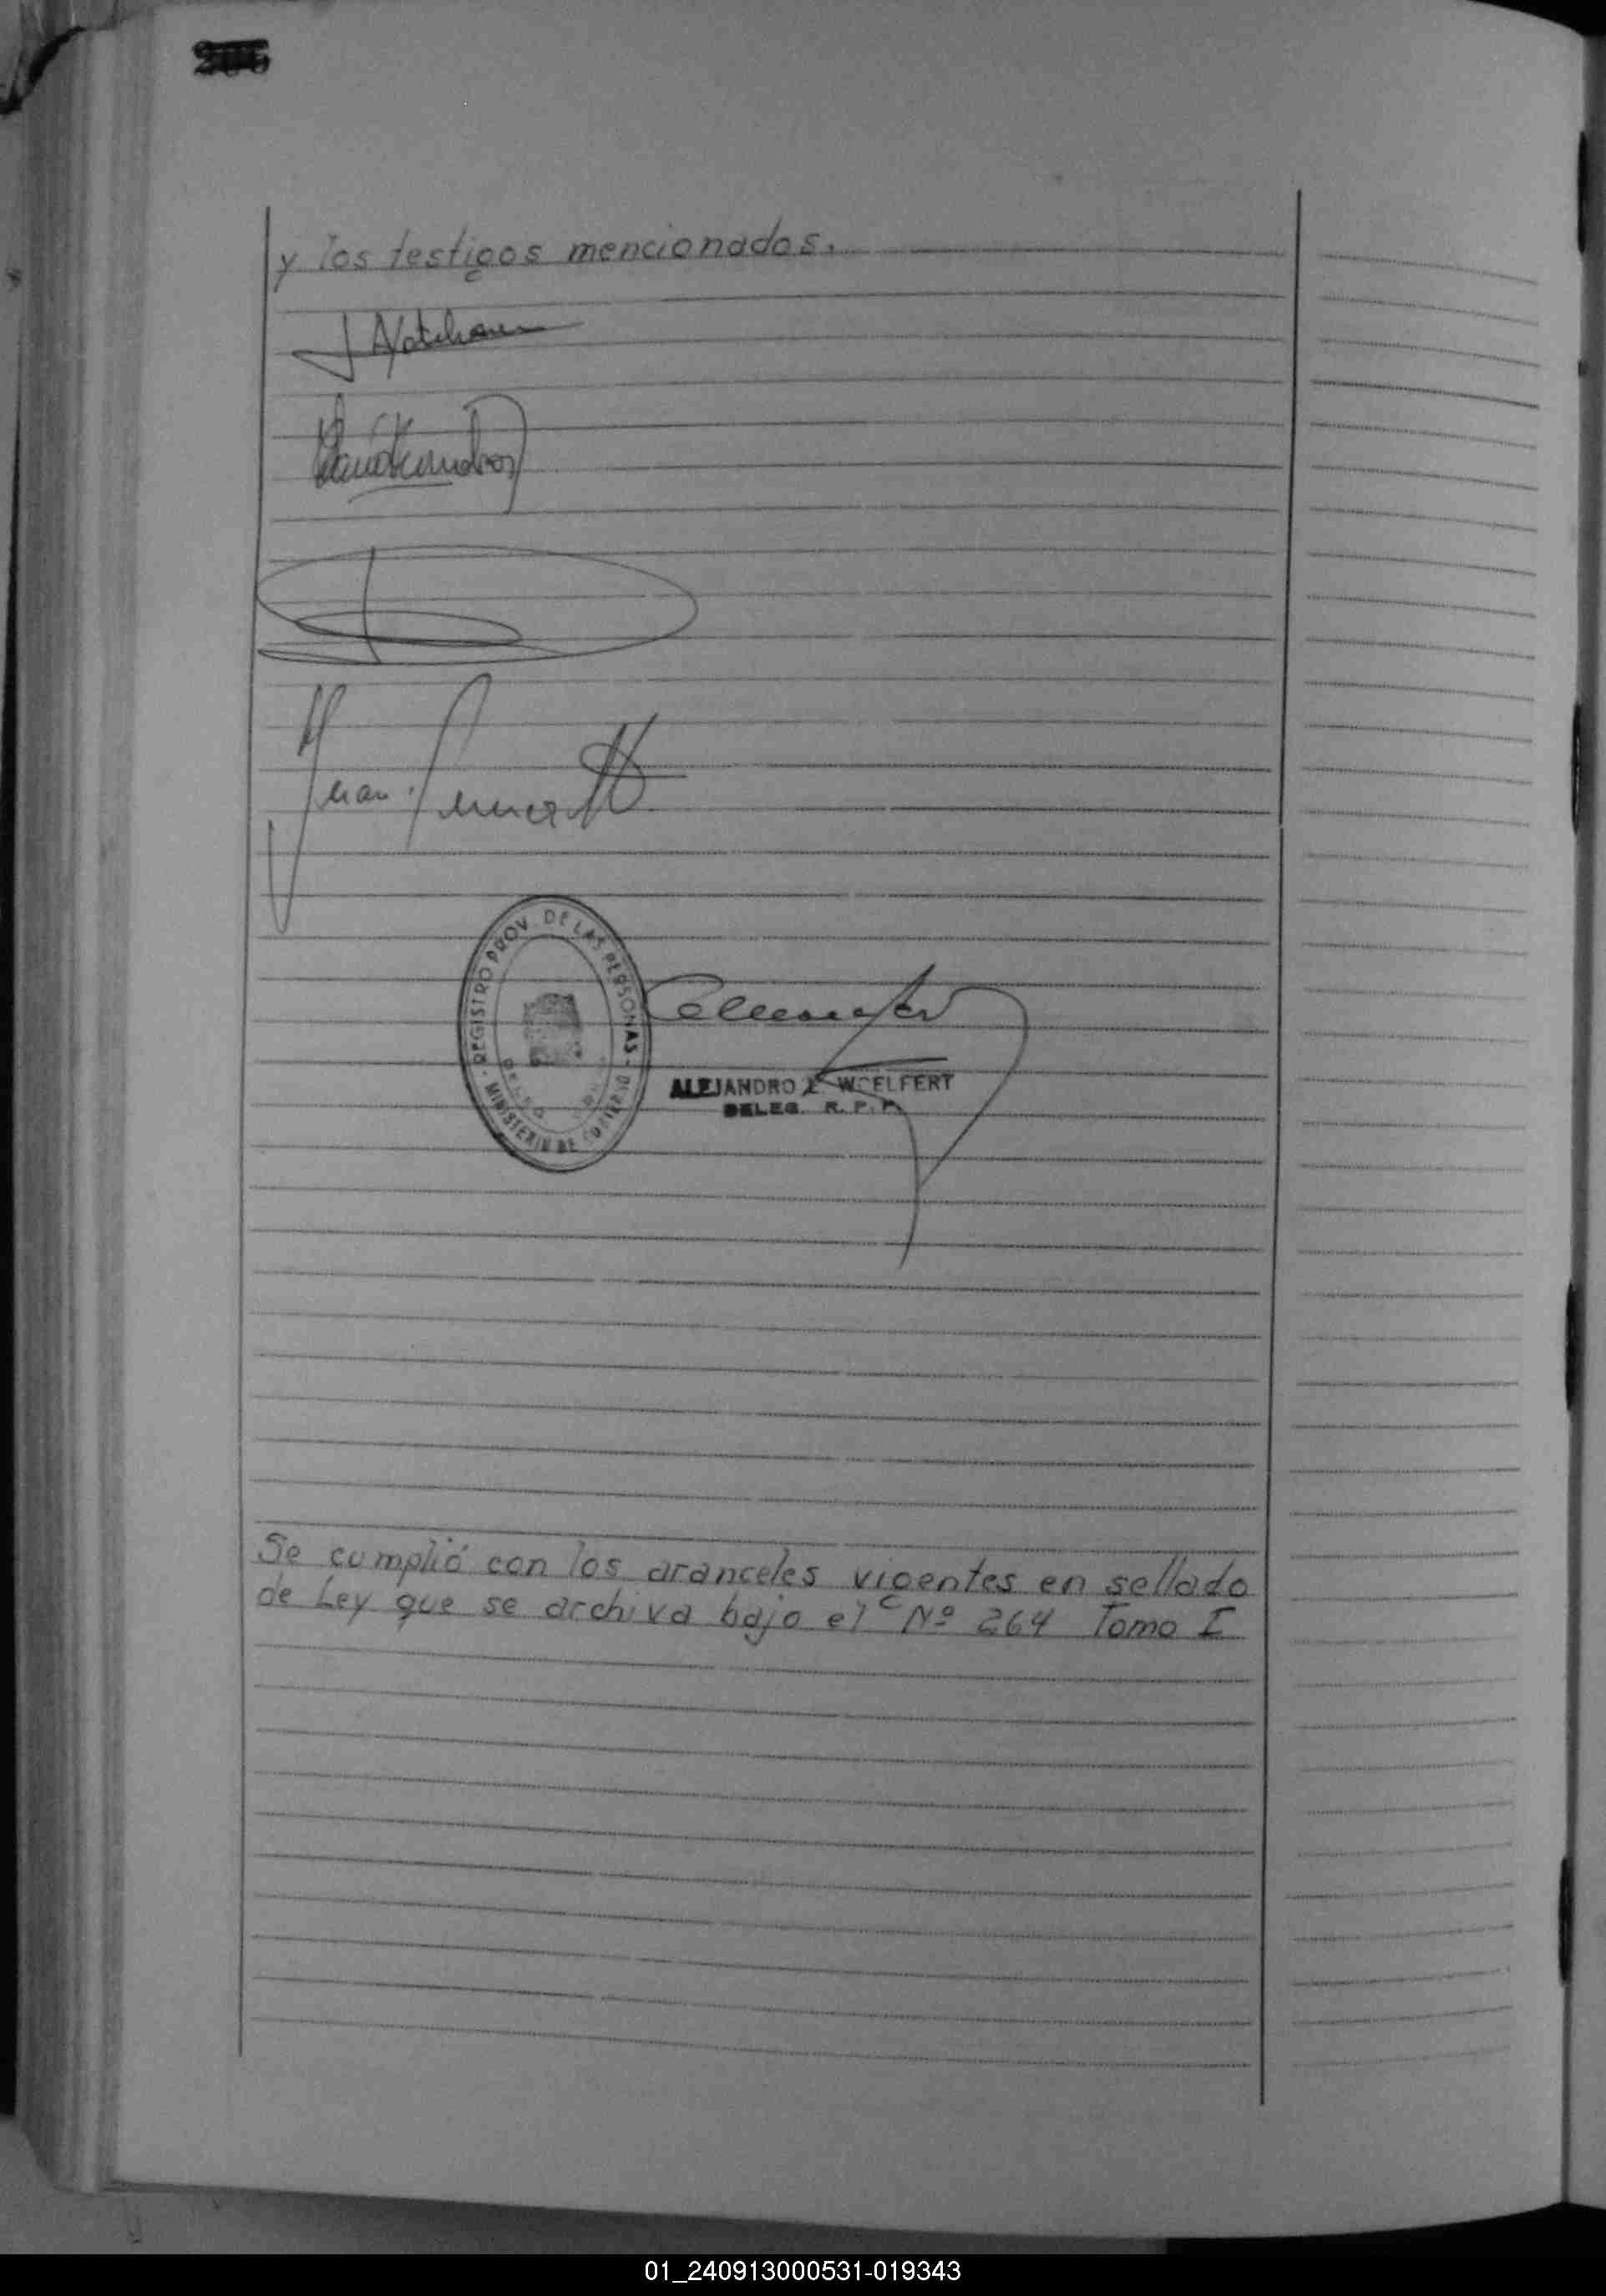 y los testigos mencionados.
Juan
REGISTRO PROV. DE LAS PERSONAS - MINISTERIO DE GOBIERNO -
ALEJANDRO E. WOELFERT
DELEG. R. P. P.
Se cumplió con los aranceles vigentes en sellado
de Ley que se archiva bajo el Nº 264 Tomo I
01_240913000531-019343